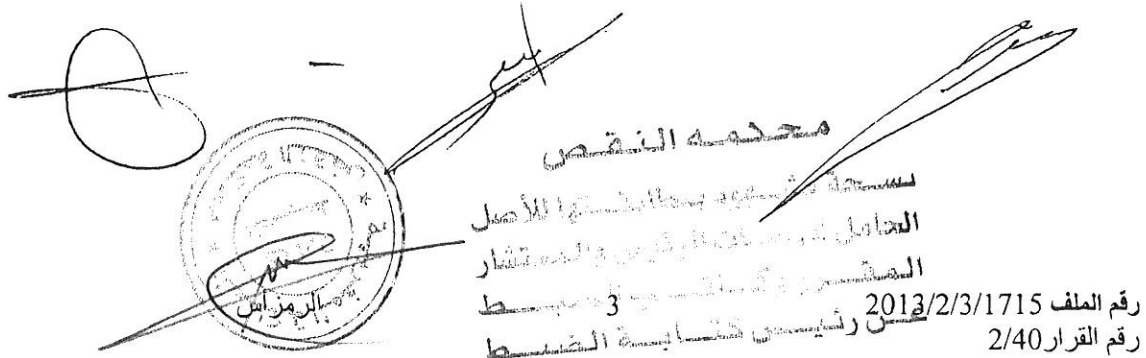 محكمة النقض
نسخة مشهود بمطابقتها للأصل
الحامل لتوقيعات الرئيس والمستشار
المقرر وكاتب الضبط
عن رئيس كتابة الضبط
3
رقم الملف 2013/2/3/1715
رقم القرار 2/40